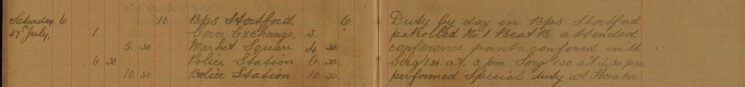 Saturday 6 10 Bps Stortford 6 Duty by day in Bps Stortford
17th July. 1 Corn Exchange. 3. patrolled No 1 Beat B. attended
5 30 Market Square 4 30 conference points confered with
6 30 Police Station 6 30 Serg 130 at 3 pm Serg 130 at 4.30 pm
10 30 Police Station 10 30 performed Special duty at Theatre